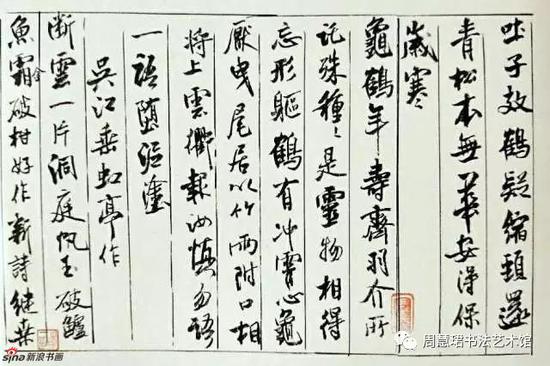 吐子效鶴疑縮頸還
青松本無華安得保
歲寒
龜鶴年壽齊羽介所
託殊種〻是靈物相得
忘形軀鶴有冲霄心龜
厭曳尾居以竹兩附口相
將上雲衢報汝慎勿語
一語墮泥塗
吳江垂虹亭作
斷雲一片洞庭帆玉破鱸
魚霜金破柑好作新詩繼桑
sina新浪书画
周慧珺书法艺术馆